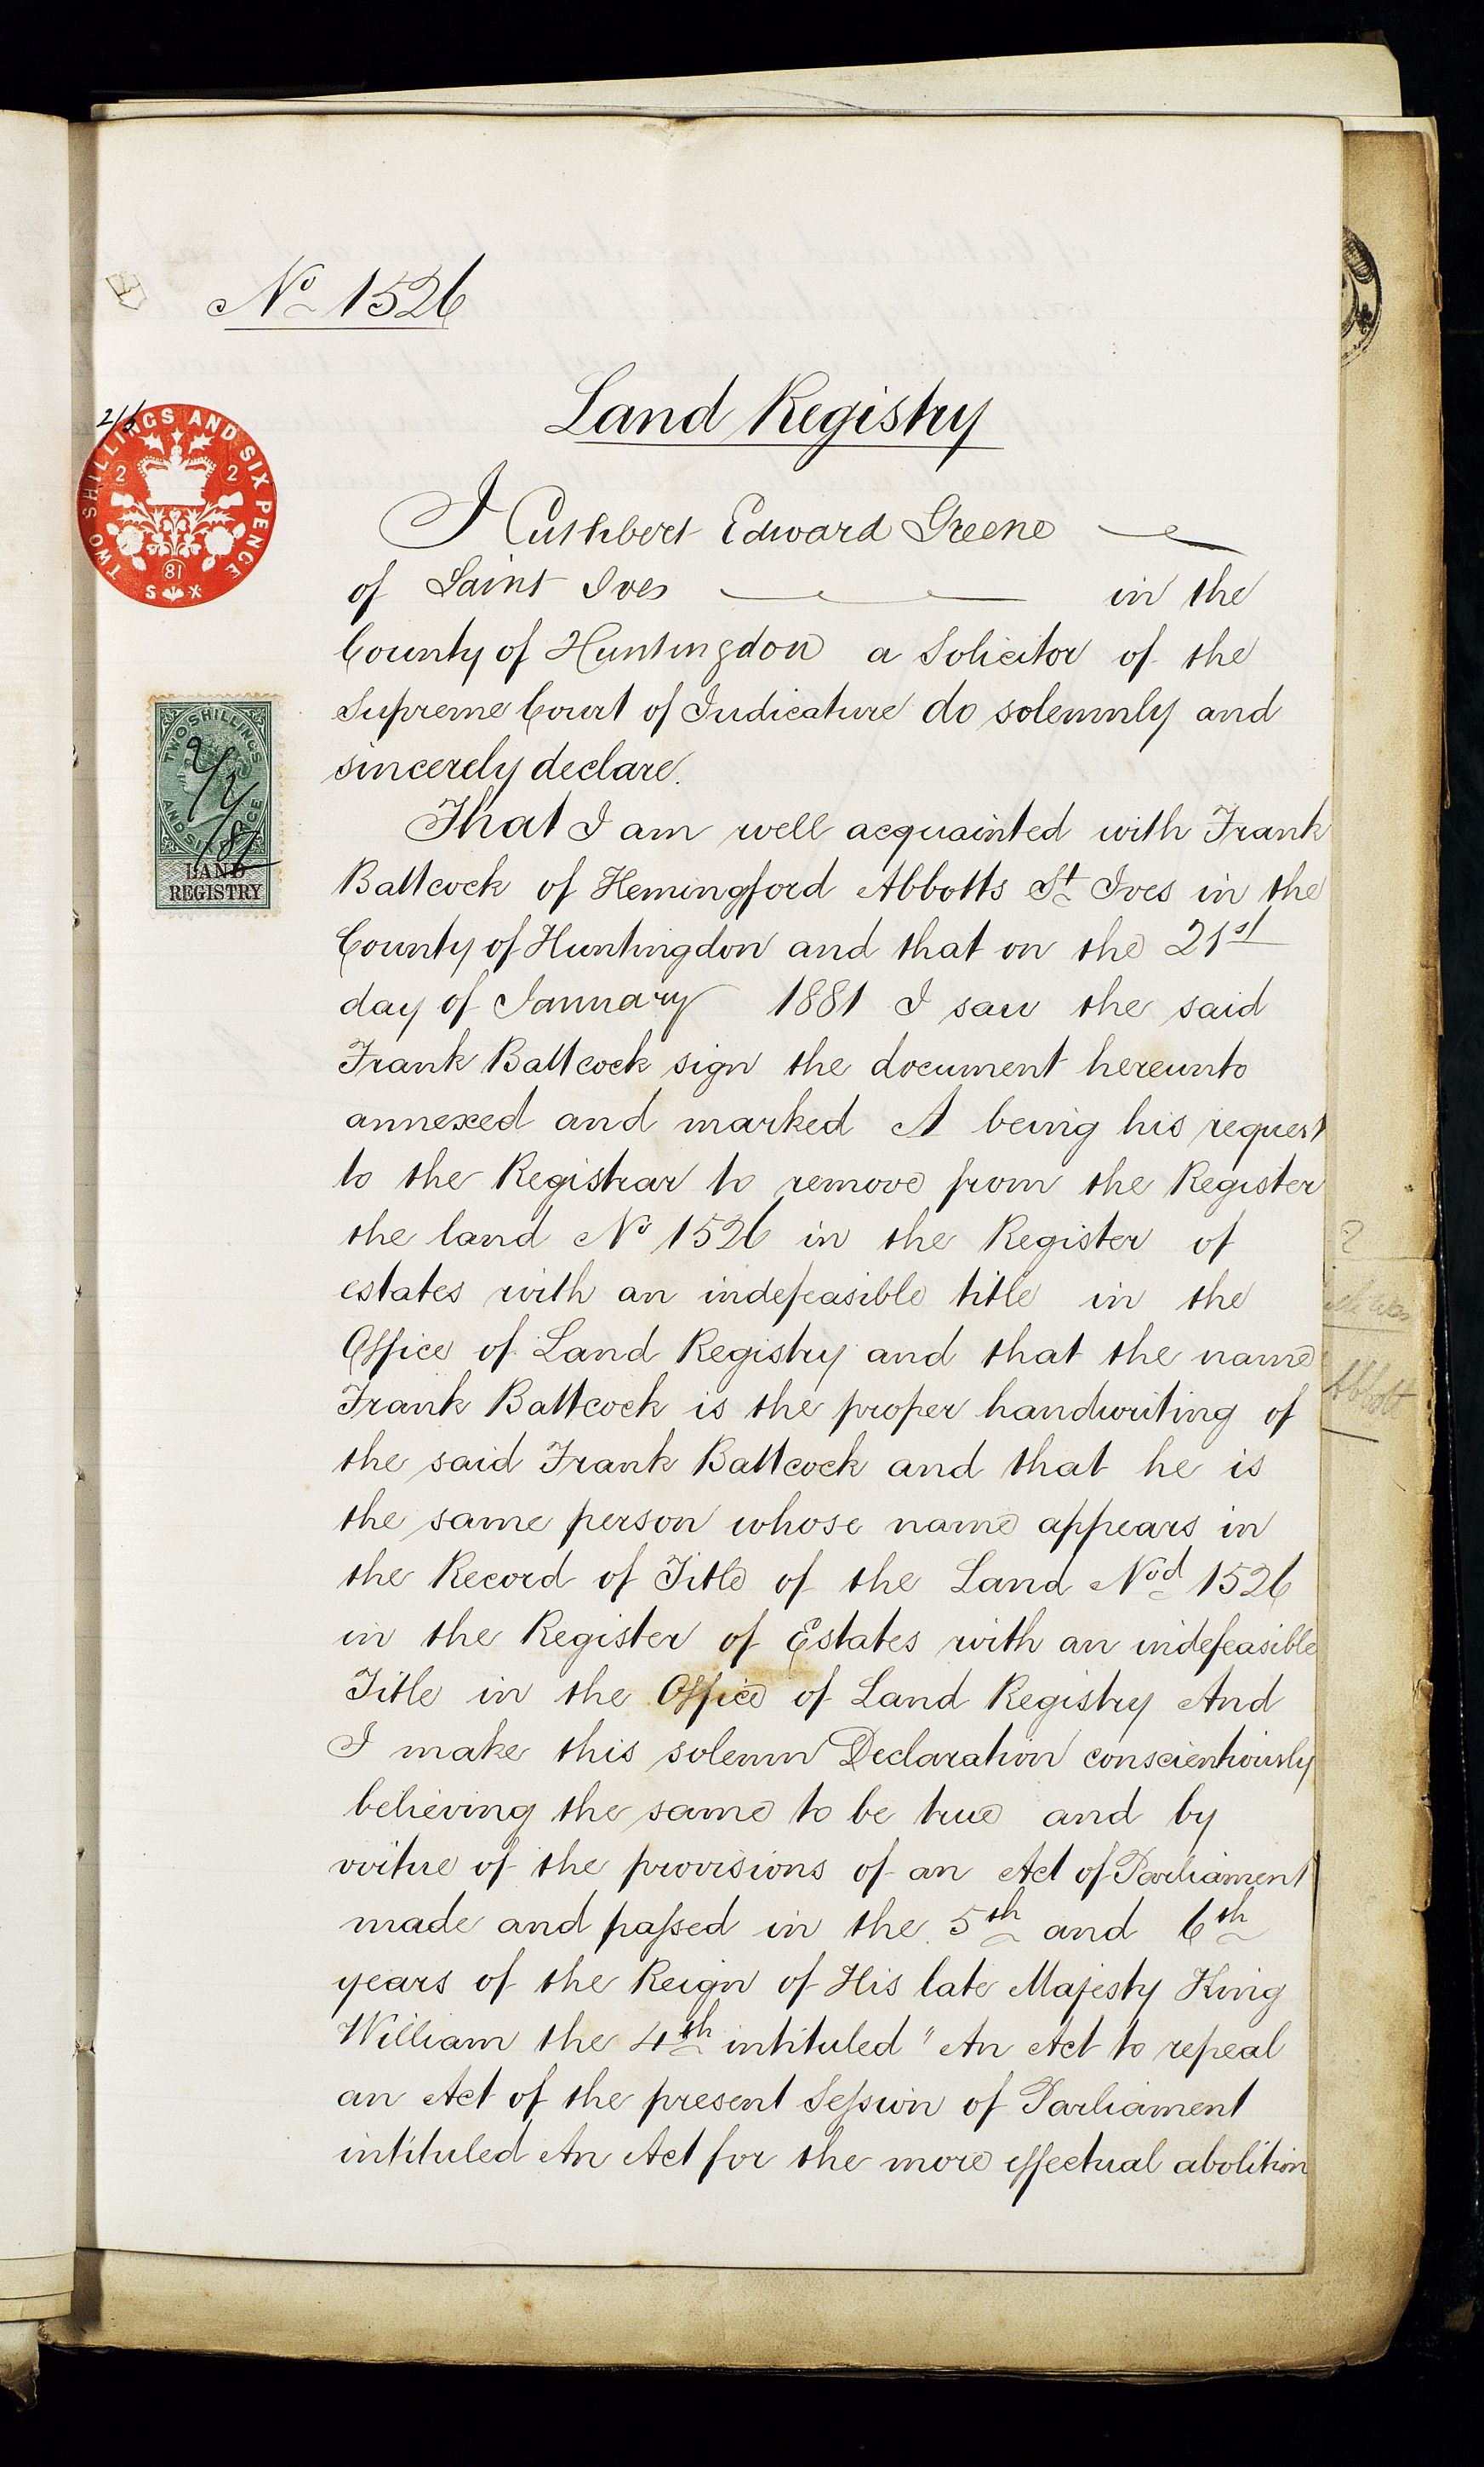 No 1526
Land Registry
2/6
TWO SHILLINGS AND SIX PENCE
2 2
81
S X
I Cuthbert Edward Greene
of Saint Ives in the
County of Huntingdon a Solicitor of the
Supreme Court of Judicature do solemnly and
sincerely declare.
TWO SHILLINGS
AND SIX PENCE
2/2/81
LAND
REGISTRY
That I am well acquainted with Frank
Battcock of Hemingford Abbotts St Ives in the
County of Huntingdon and that on the 21st
day of January 1881 I saw the said
Frank Battcock sign the document hereunto
annexed and marked A being his request
to the Registrar to remove from the Register
the land No 1526 in the Register of
estates with an indefeasible title in the
Office of Land Registry and that the name
Frank Battcock is the proper handwriting of
the said Frank Battcock and that he is
the same person whose name appears in
the Record of Title of the Land Nod 1526
in the Register of Estates with an indefeasible
Title in the Office of Land Registry And
I make this solemn Declaration conscientiously
believing the same to be true and by
virtue of the provisions of an Act of Parliament
made and passed in the 5th and 6th
years of the Reign of His late Majesty King
William the 4th intituled "An Act to repeal
an Act of the present Session of Parliament
intituled An Act for the more effectual abolition